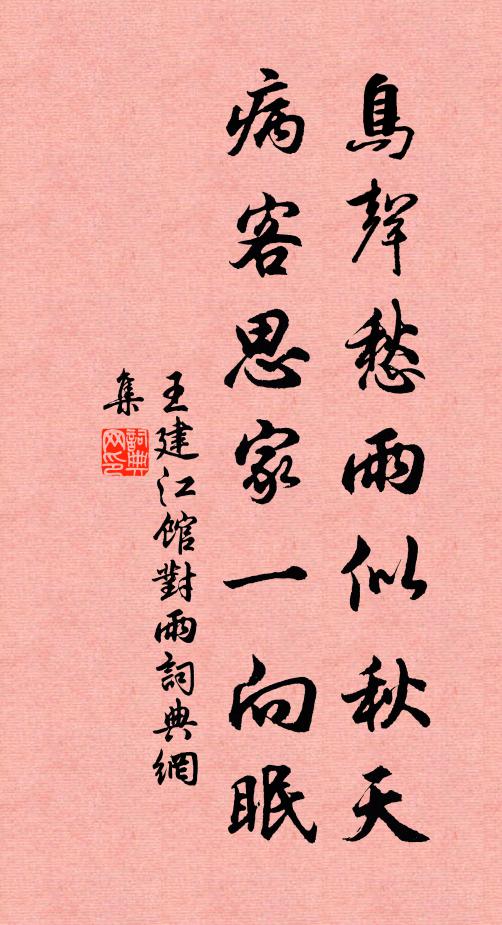 鳥聲愁雨似秋天
病客思家一向眠
王建江館對雨詞典網
集
詞典
网印